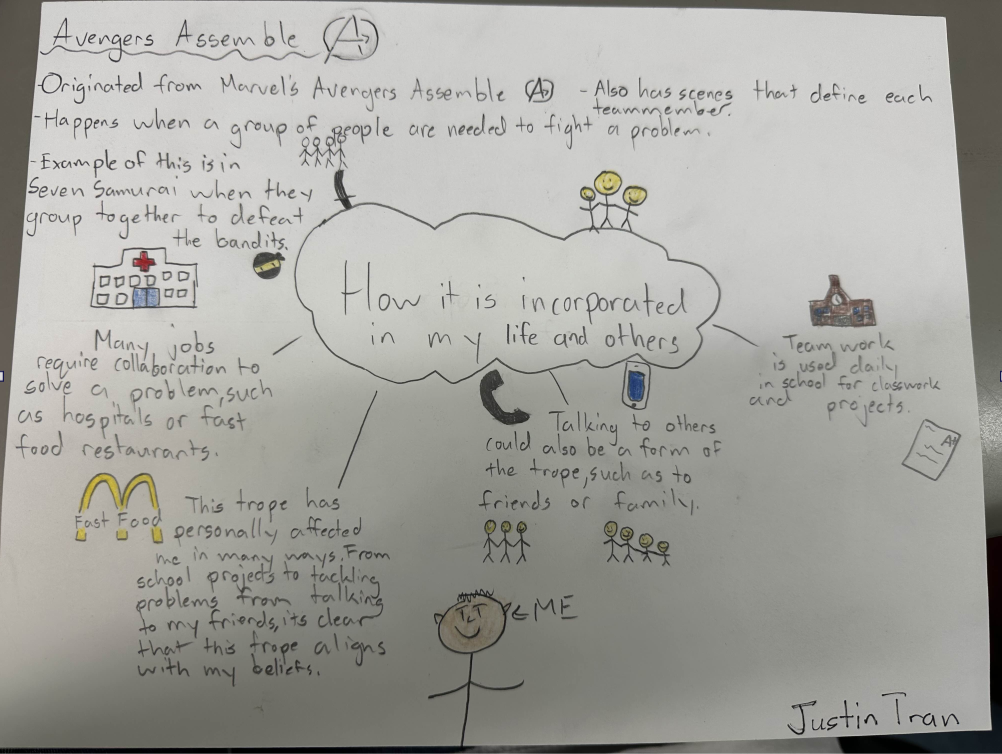 Avengers Assemble A
-Originated from Marvel's Avengers Assemble A
-Also has scenes that define each
teammember.
-Happens when a group of people are needed to fight a problem.
-Example of this is in
Seven Samurai when they
group together to defeat
the bandits.
How it is incorporated
in my life and others
Many jobs
require collaboration to
solve a problem, such
as hospitals or fast
food restaurants.
Team work
is used daily
in school for classwork
and projects.
A+
Talking to others
could also be a form of
the trope, such as to
friends or family.
Fast Food
This trope has
personally affected
me in many ways. From
school projects to tackling
problems from talking
to my friends, its clear
that this trope aligns
with my beliefs.
ME
Justin Tran